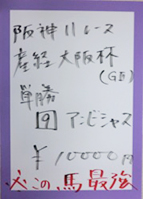 阪神11レース
産経大阪杯
(GII)
単勝
9 アンビシャス
¥10000円
この馬最強